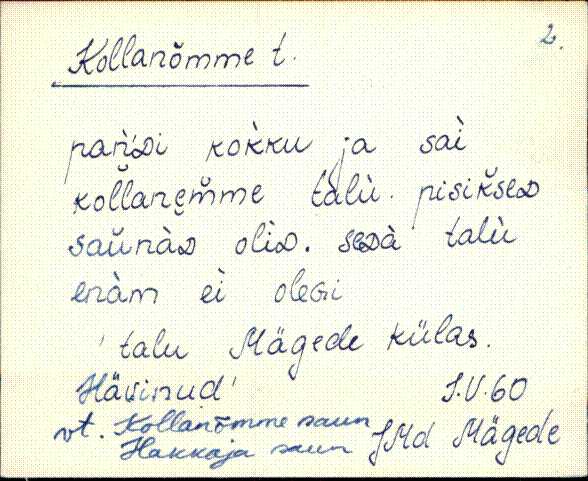 2.
Kollanõmme t.
pań̀ᴅi kok̀ku ja saì
kol̆lanem̆me tàlù. pisik̆seᴅ
saŭnàᴅ olìᴅ. seᴅà talù
enàm eì oleɢi
' talu Mägede külas.
Hävinud' J.V.60
vt. Kollanõmme saun
Hakkaja saun JMd Mägede